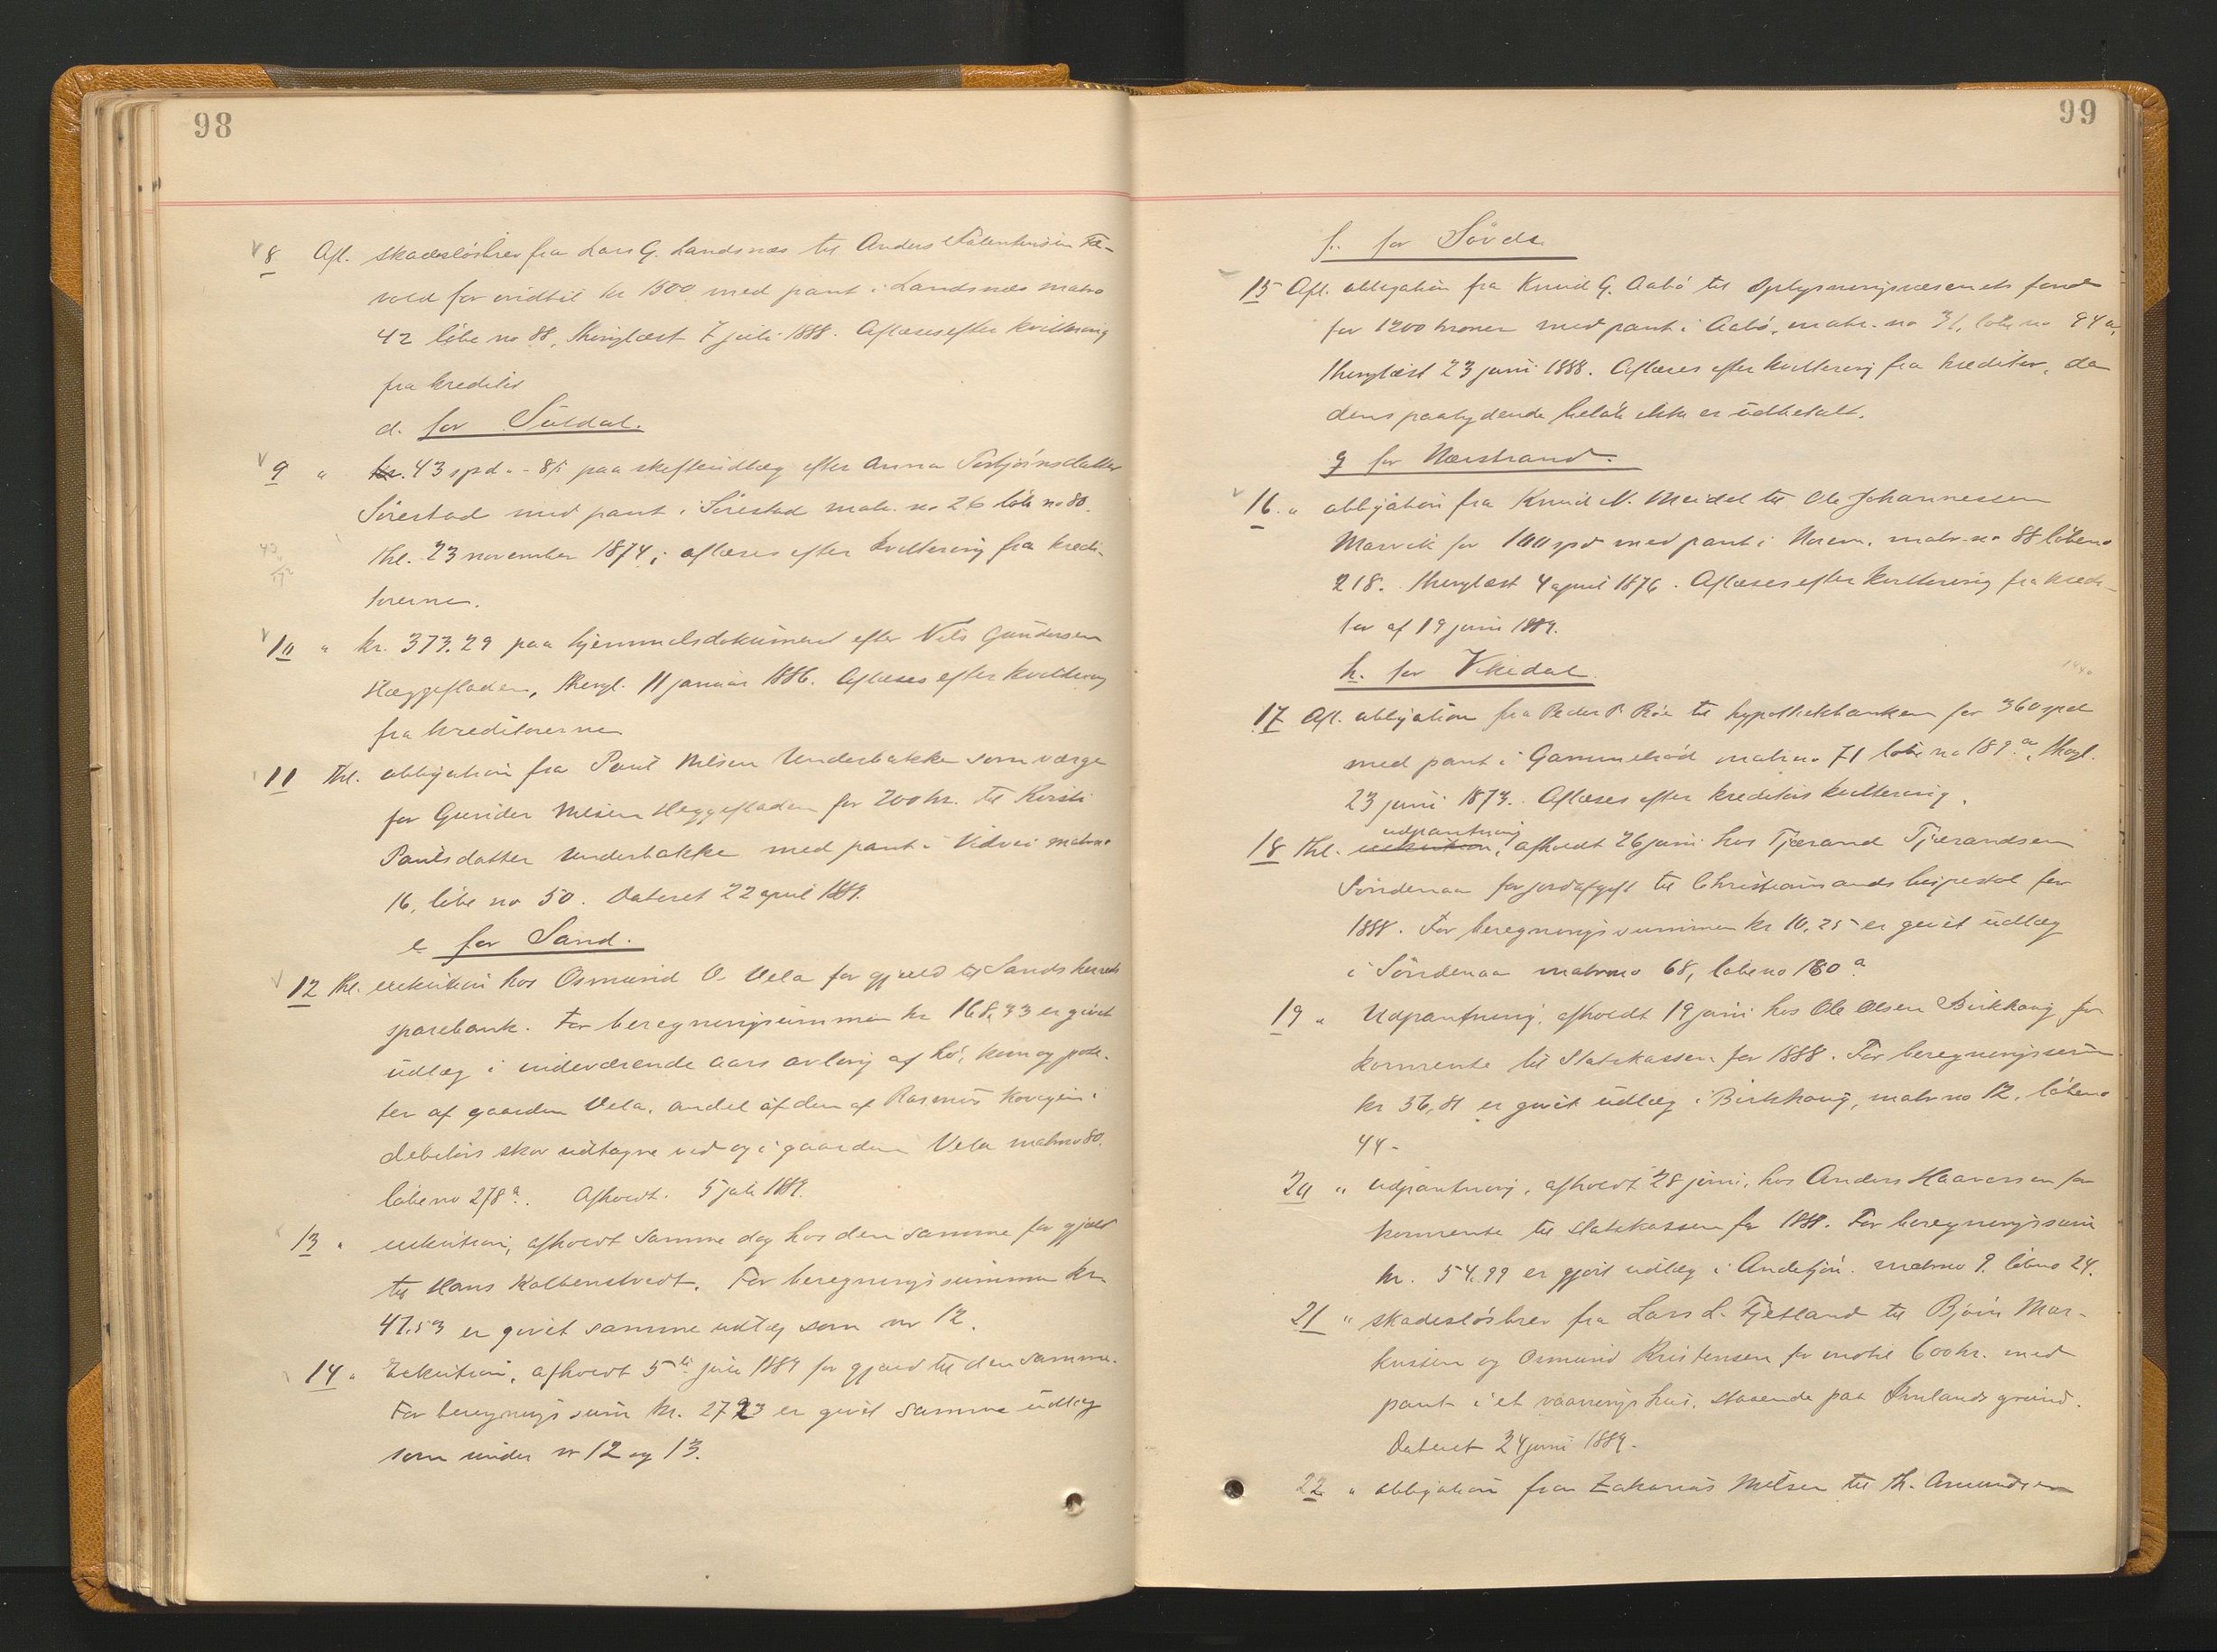 98
8 Afl. skadesløsbrev fra Lars G. Landsnes til Anders
vold for indtil kr 1500 med pant i Landsnes matrno
42 löbe no 88, thinglæst 7 juli 1888. Aflæses efter kvittering
fra kreditor
d. for Suldal.
9 " 43 spd. paa skifteudlæg efter Anna Torbjörnsdatter
Sörestad med pant i Sörestad matr. no 26 löbe no 80.
thl. 23 november 1874; aflæses efter kvittering fra kredi-
torerne.
10 " kr. 373.29 paa hjemmelsdokument efter Nils Gundersen
Hæggefladen, thingl. 11 januar 1886. Aflæses efter kvittering
fra kreditorerne
11 Thl. obligation fra Paul Nilsen Underbakke som værge
for Gunder Nilsen Heggefladen for 200 kr. til Kirsti
Paulsdatter Underbakke med pant i matrno
16, löbe no 50. Dateret 22 april 1889.
e for Sand.
12 thl. exekution hos Osmund O. Vela for gjæld til Sands herreds
sparebank. For beregningssummen kr 168,33 er givet
udlæg i indeværende aars avling af hö, korn og pote-
ter af gaarden Vela, andel af den af Rasmus i
debitors skov udtagne ved og i gaarden Vela matrno 80.
löbeno 278a. Afholdt 5 juli 1889.
13 " exekution, afholdt samme dag hos den samme for gjæld
til Hans Kolbenstvedt. For beregningssummen kr.
47.53 er givet samme udlæg som nr 12.
14 " Exekution, afholdt 5te juli 1889 for gjæld til den samme.
For beregningssum kr. 2723 er givet samme udlæg
som under nr 12 og 13.
99
f. for Søvde
15 Afl. obligation fra Knud G. Aabö til Oplysningsvæsenets fond
for 1200 kroner med pant i Aabö, matr. no 31, löbe no 94a,
thinglæst 23 juni 1888. Aflæses efter kvittering fra kreditor, da
dens paalydende belöb ikke er udbetalt.
g for Nerstrand.
16 " obligation fra Knud N. Meidel til Ole Johannessen
Marvik for 100 spd med pant i matr. no 88 löbeno
218. thinglæst 4 april 1876. Aflæses efter kvittering fra kredi-
tor af 19 juni 1889.
h. for Vikedal
17 Afl. obligation fra Peder P. Röe til hypothekbanken for 360 spd
med pant i Gammelröd matrno 71 löbe no 189a, thingl.
23 juni 1873. Aflæses efter kreditors kvittering.
18 thl. udpantning, afholdt 26 juni hos Tjerand Tjerandsen
Söndenaa for jordafgift til Christianssands hospital for
1888. For beregningssummen kr 10,25 er givet udlæg
i Söndenaa matrno 68, löbeno 180a.
19 " Udpantning, afholdt 19 juni hos Ole Olsen Birkhaug for
kornrente til Statskassen for 1888. For beregningssum
kr 36,81 er givet udlæg i Birkhaug, matrno 12, löbeno
44.
20 " udpantning, afholdt 28 juni, hos Anders Haaversen for
kornrente til statskassen for 1888. For beregningssum
kr. 54.99 er gjort udlæg i matrno 9. löbeno 24.
21 " skadeslösbrev fra Lars L. Fjetland til Björn Mar-
kussen og Osmund Kristensen for indtil 600 kr. med
pant i et vaaningshus, staaende paa grund.
Dateret 24 juni 1889.
22 " obligation fra Zakarias Nilsen til Th. Amundsen